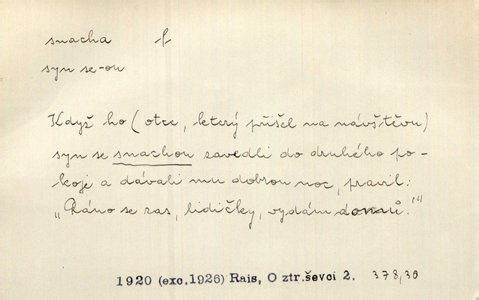 snacha f
syn se-ou
Když ho (otce, který přišel na návštěvu)
syn se snachou zavedli do druhého po-
koje a dávali mu dobrou noc, pravil:
„Ráno se zas, lidičky, vydám domů.“
1920 (exc. 1926) Rais, O ztr. ševci 2. 378,30